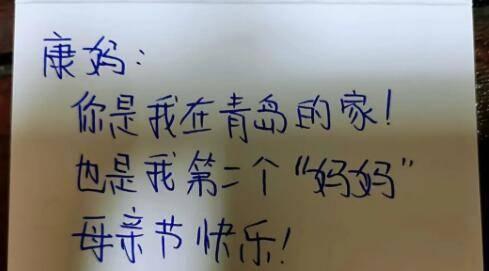 康妈：
你是我在青岛的家！
也是我第二个“妈妈”
母亲节快乐！